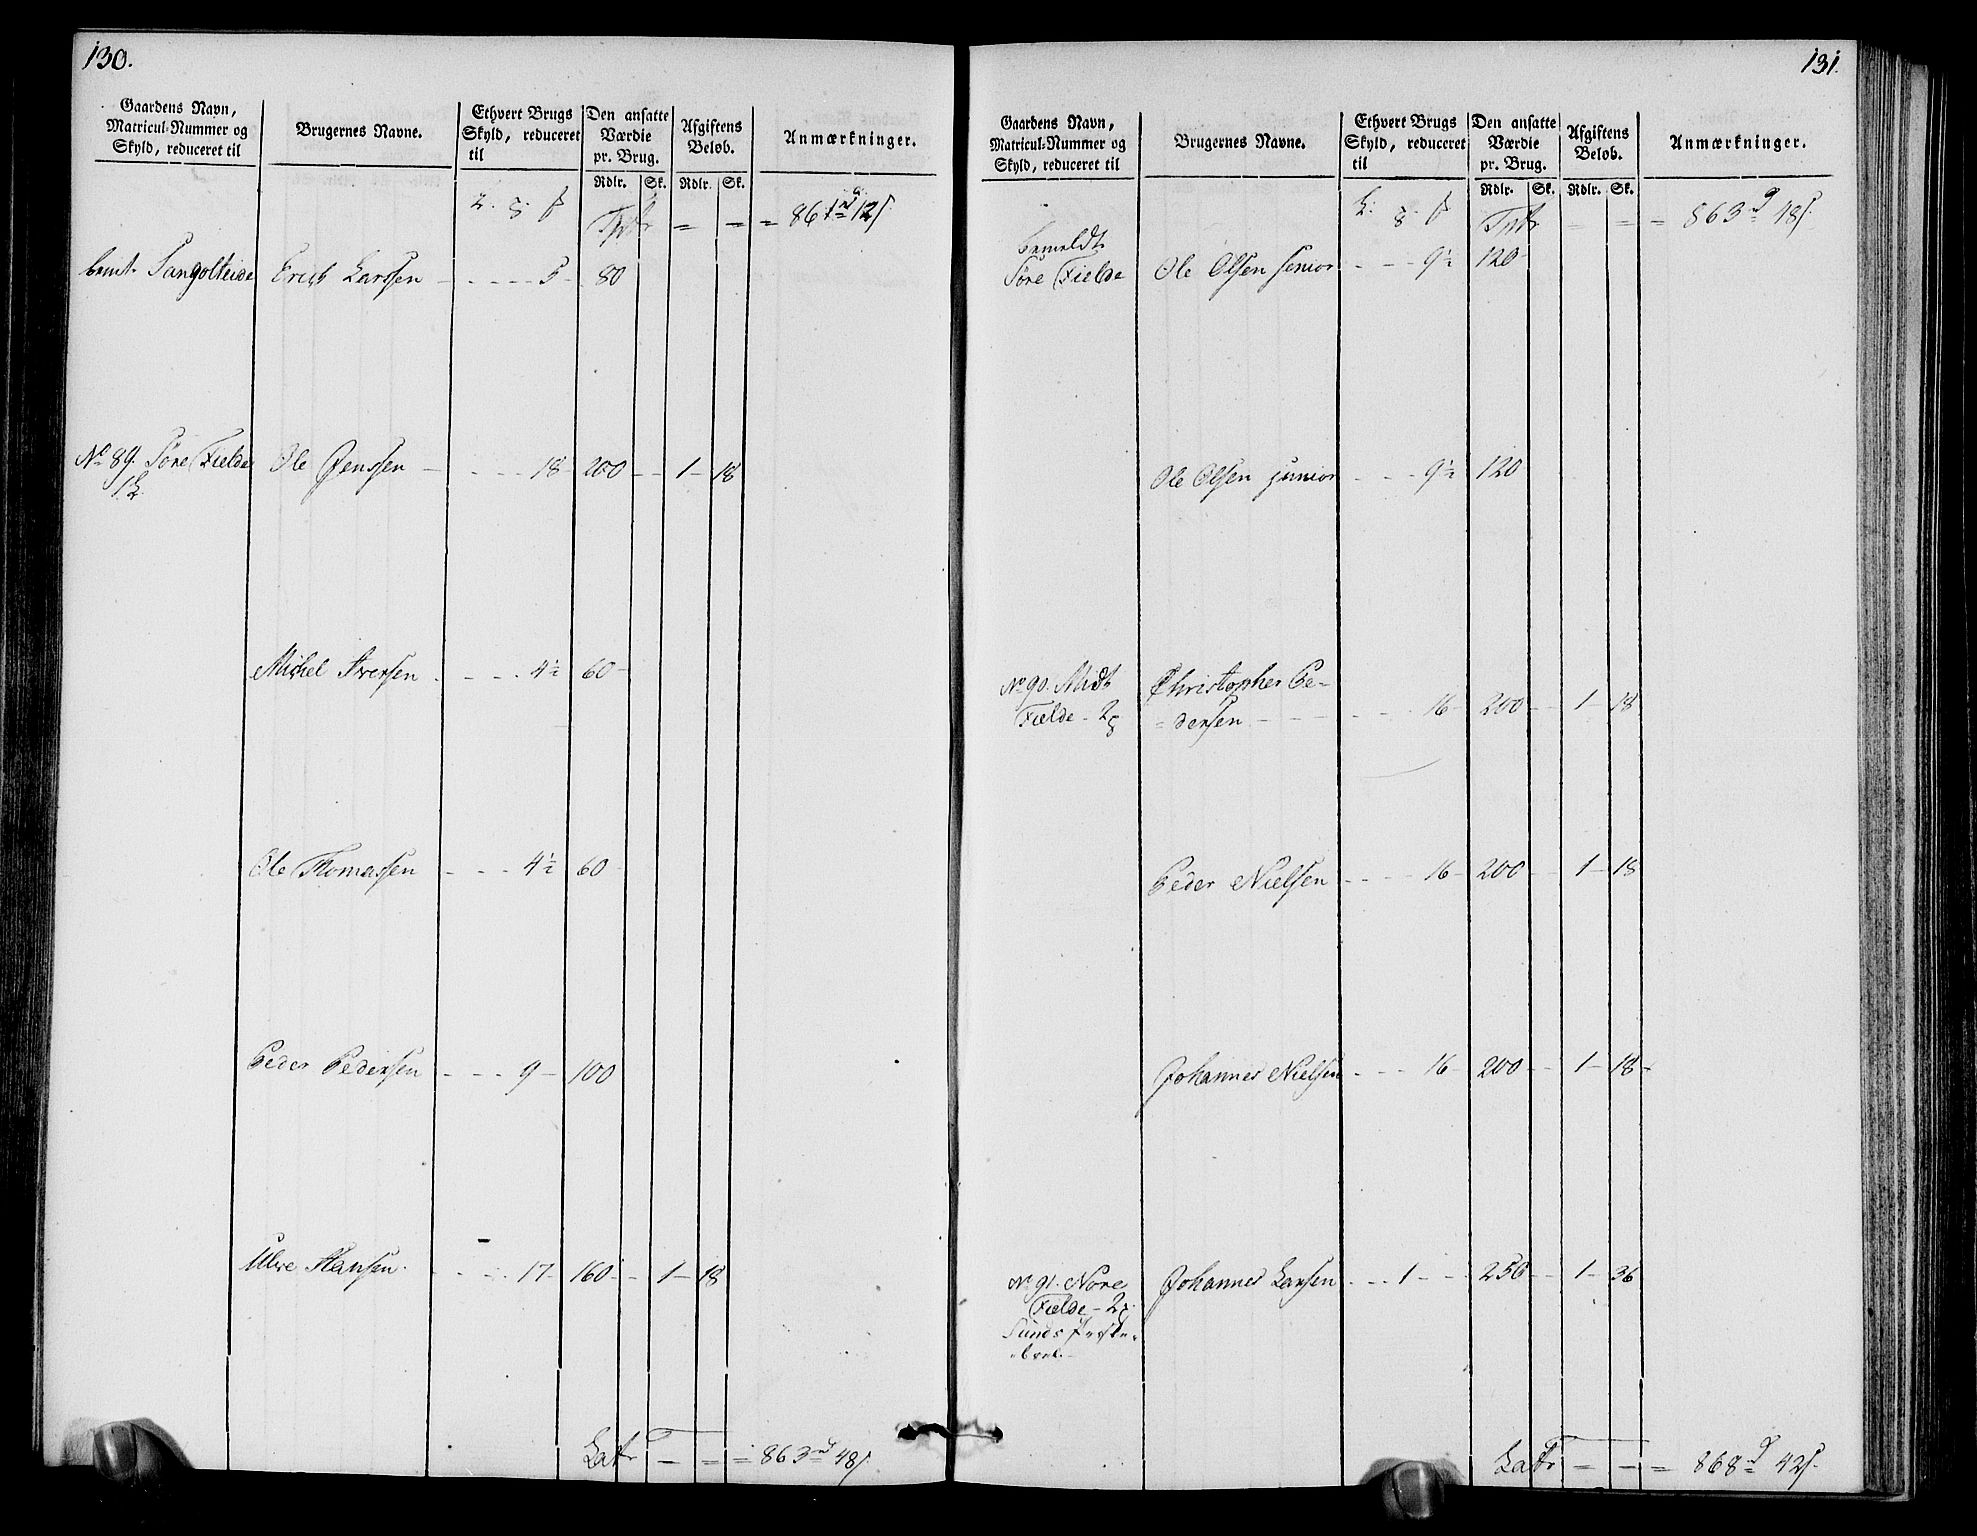 130.
Gaardens Navn,
Matricul-Nummer og
Skyld, reduceret til
Brugernes Navne.
Ethvert Brugs
Skyld, reduceret
til
Den ansatte
Værdie
pr. Brug.
Rdlr. Sk.
Afgiftens
Beløb.
Rdlr. Sk.
Anmærkninger.
Tptr = = = 861 12
bemt. Sangolteide Erich Larssen - - - - - 5 - 80
No 89. Søre Fielde Ole Jenssen - - - - 18 - 200 - - 1 - 18
Michel Iversen - - - 4½ 60 -
Ole Thomassen - - - 4½ 60 -
Peder Pedersen - - - 9 - 100
Ulve Hansen - - - 17 - 160 - - 1 - 18
Latr = = = 863 48
131.
Gaardens Navn,
Matricul-Nummer og
Skyld, reduceret til
Brugernes Navne.
Ethvert Brugs
Skyld, reduceret
til
Den ansatte
Værdie
pr. Brug.
Rdlr. Sk.
Afgiftens
Beløb.
Rdlr. Sk.
Anmærkninger.
Tptr = = = 863 48
bemeldte
Søre Fielde Ole Olsen senior - - - 9½ 120
Ole Olsen junior - - - 9½ 120
No 90. Midt Christopher Pe-
Fielde - 2 = dersen - - - - - 16 - 200 - - 1 - 18
Peder Nielsen - - - - 16 - 200 - - 1 - 18
Johannes Nielsen - - - 16 - 200 - - 1 - 18 -
No 91. Nore Johannes Larsen - - - 1 - - 250 - - 1 - 36
Fielde - 2
Sunds
Latr = = = 868 42